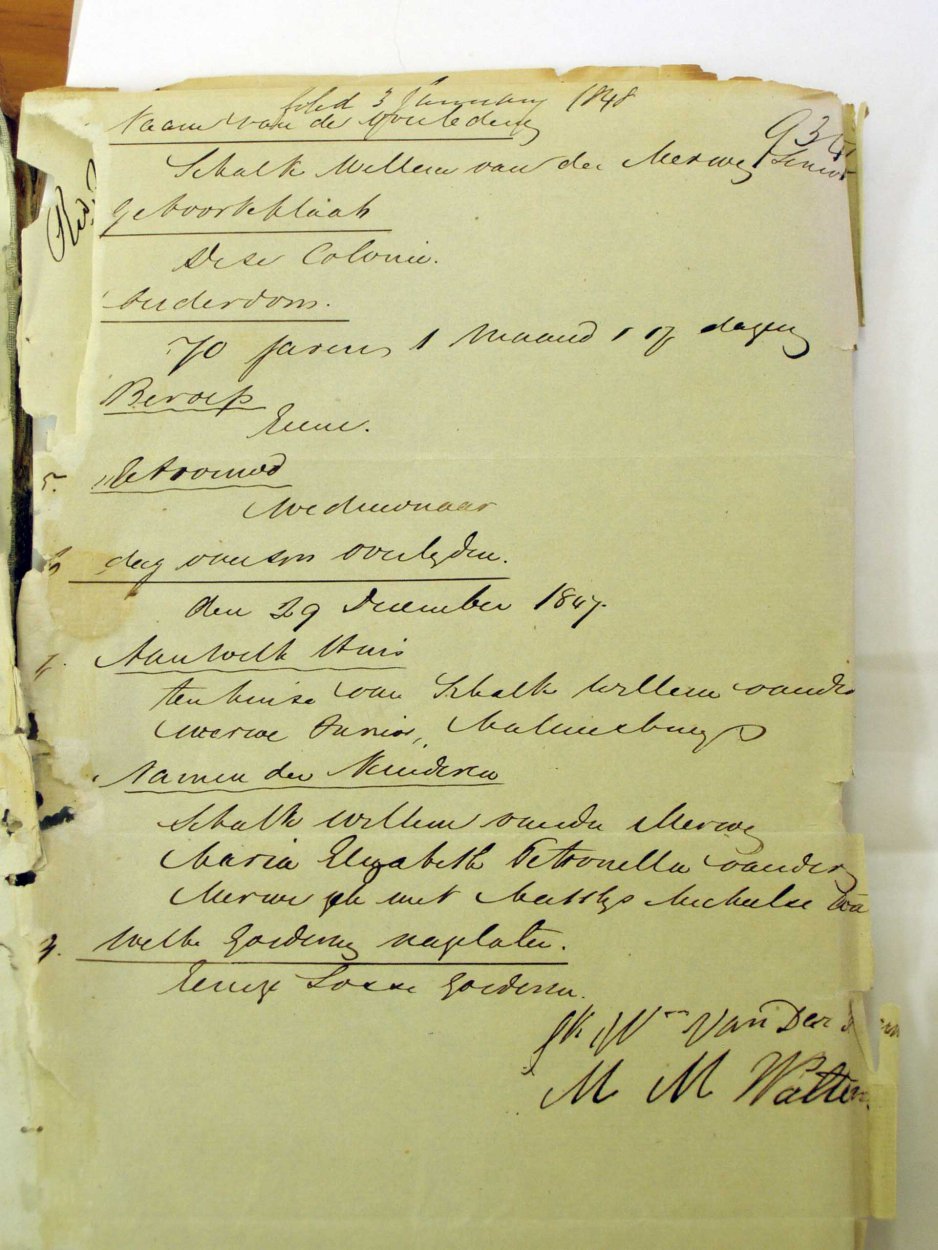 filed 3 January 1848
Naam van de Overledene
934
Schalk Willem van der Merwe Senior
geboorteplaats
Dese Colonie.
Ouderdom.
70 jaren 1 Maand dagen
Beroep
Geene.
5. Getrouwd
Weduwnaar
6 dag van syn overlyden.
den 29 December 1847.
7. Aan welk Huis
ten huise van Schalk Willem vander
Merwe Junior, Malmesbury
Namen der Kinderen
Schalk Willem vander Merwe
Maria Elizabeth Petronella vander
Merwe geh met Matthys Michielse
9. Welke Goederen nagelaten.
Eenige Losse Goederen.
Sk Wm Van Der
M M Walters